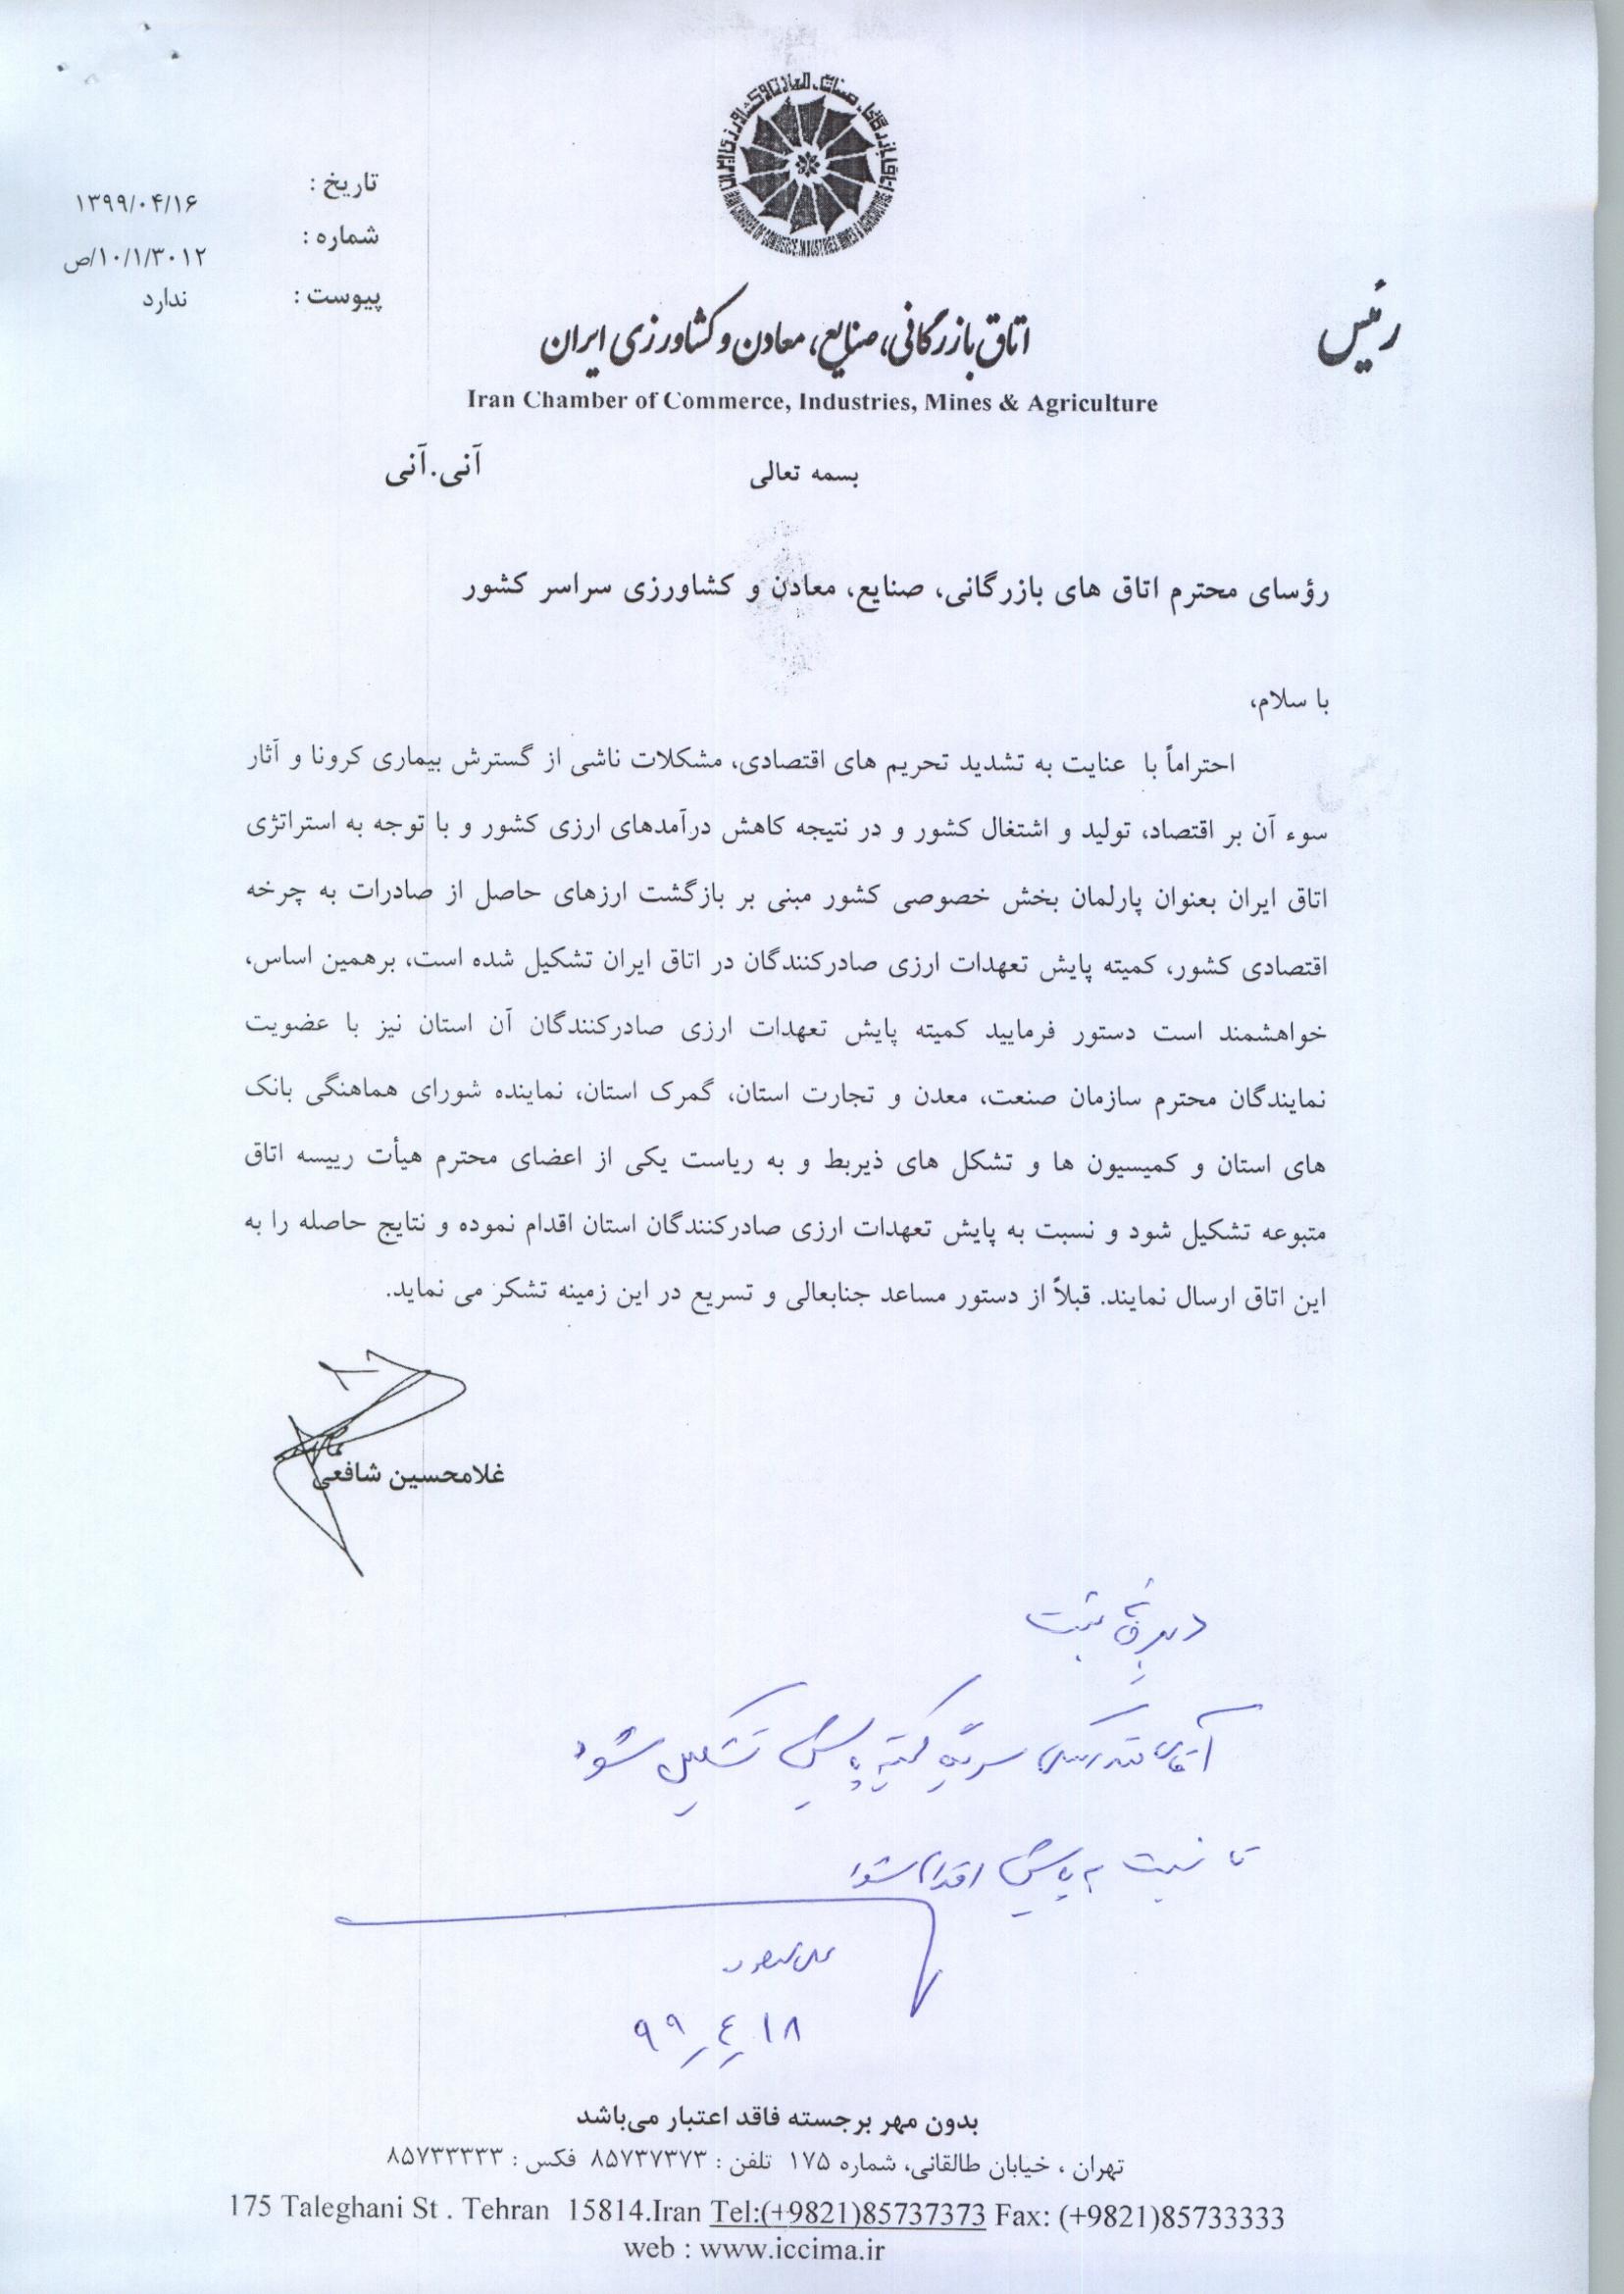 تاریخ : ۱۳۹۹/۰۴/۱۶
شماره : ۱۰/۱/۳۰۱۲/ص
پیوست : ندارد
رئیس
اتاق بازرگانی، صنایع، معادن و کشاورزی ایران
Iran Chamber of Commerce, Industries, Mines & Agriculture
بسمه تعالی
آنی.آنی
رؤسای محترم اتاق های بازرگانی، صنایع، معادن و کشاورزی سراسر کشور
با سلام،
احتراماً با عنایت به تشدید تحریم های اقتصادی، مشکلات ناشی از گسترش بیماری کرونا و آثار
سوء آن بر اقتصاد، تولید و اشتغال کشور و در نتیجه کاهش درآمدهای ارزی کشور و با توجه به استراتژی
اتاق ایران بعنوان پارلمان بخش خصوصی کشور مبنی بر بازگشت ارزهای حاصل از صادرات به چرخه
اقتصادی کشور، کمیته پایش تعهدات ارزی صادرکنندگان در اتاق ایران تشکیل شده است، برهمین اساس،
خواهشمند است دستور فرمایید کمیته پایش تعهدات ارزی صادرکنندگان آن استان نیز با عضویت
نمایندگان محترم سازمان صنعت، معدن و تجارت استان، گمرک استان، نماینده شورای هماهنگی بانک
های استان و کمیسیون ها و تشکل های ذیربط و به ریاست یکی از اعضای محترم هیأت رییسه اتاق
متبوعه تشکیل شود و نسبت به پایش تعهدات ارزی صادرکنندگان استان اقدام نموده و نتایج حاصله را به
این اتاق ارسال نمایند. قبلاً از دستور مساعد جنابعالی و تسریع در این زمینه تشکر می نماید.
غلامحسین شافعی
دبیرخانه ثبت
آقای سریعاً کمیته پایش تشکیل شود
تا نسبت به پایش اقدام شود
۹۹/٤/۱۸
بدون مهر برجسته فاقد اعتبار می‌باشد
تهران ، خیابان طالقانی، شماره ۱۷۵ تلفن : ۸۵۷۳۷۳۷۳ فکس : ۸۵۷۳۳۳۳۳
175 Taleghani St . Tehran 15814.Iran Tel:(+9821)85737373 Fax: (+9821)85733333
web : www.iccima.ir